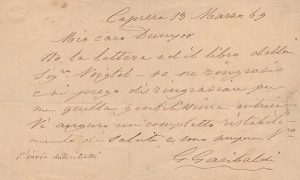 Caprera 13 Marzo 69
Mio caro Dunyov
Ho la lettera ed il libro della
Sig.ra Veigtel - ve ne ringrazio
e vi prego di ringraziare per
me quella gentilissima
Vi auguro un completo ristabili-
mento di salute, e sono sempre V.ro
G. Garibaldi